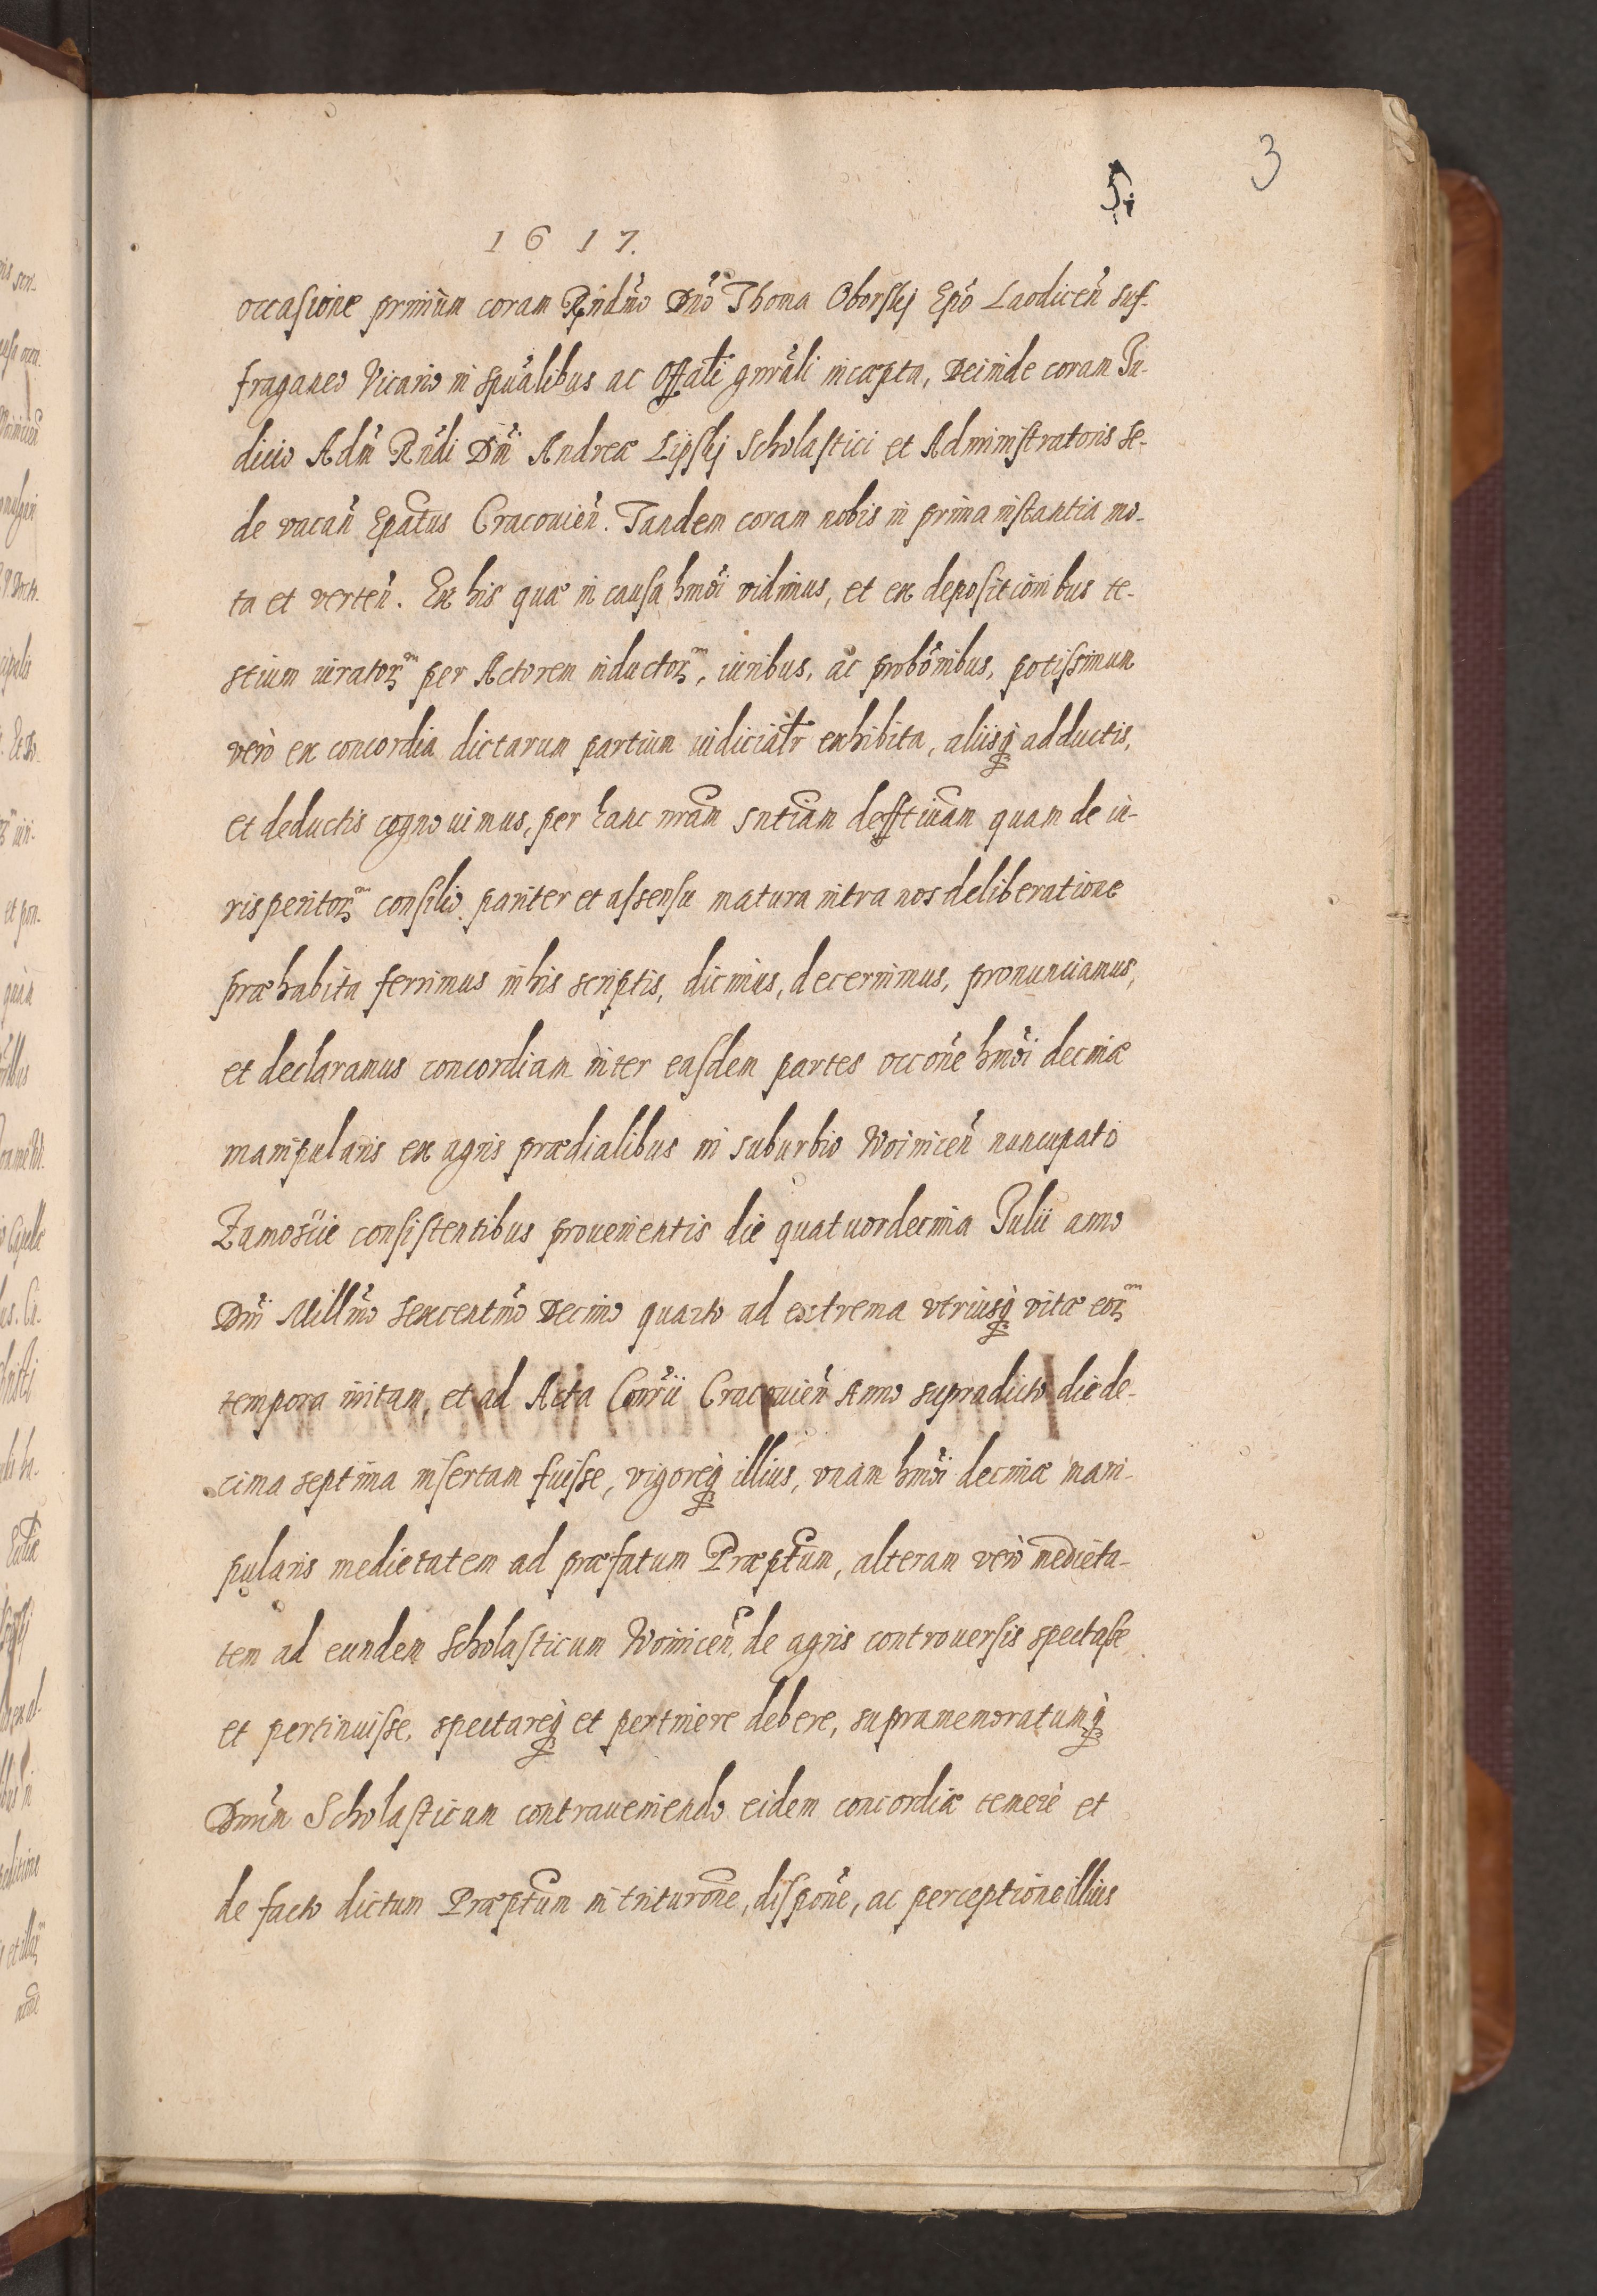 3
5.
1617.
occasione primum coram Rndmo Dno Thoma Oborskj Epo Laodicen̄ suf-
fraganeo Vicario in spūalibus ac Offāli gnrāli incæpta, Deinde coram Iu-
dicio Adm Rndi Dni Andreæ Lipskj Scholastici et Administratoris se-
de vacan̄ Epatus Cracouien̄. Tandem coram nobis in prima instantia mo-
ta et verten̄. Ex his quæ in causa hmoi vidimus, et ex depositionibus te-
stium iuratorꝝ per Actorem inductorꝝ, iuribus, ac probōnibus, potissimum
verò ex concordia dictarum partium iudicialr exhibita, aliisqꝫ adductis,
et deductis cognouimus, per hanc nrām sntiam deffitiuam quam de iu-
risperitorꝝ consilio pariter et assensu matura intra nos deliberatione
præhabita ferrimus in his scriptis, dicimus, decernimus, pronunciamus,
et declaramus concordiam inter easdem partes occōne hmoi decimæ
manipularis ex agris prædialibus in suburbio Woinicen̄ nuncupato
Zamoscie consistentibus prouenientis die quatuordecima Iulii anno
Dni Millmo Sexcentmo Decimo quarto ad extrema vtriusqꝫ vitæ eorꝝ
tempora initam, et ad Acta Consrii Cracouien̄ Anno supradicto die de-
cima septima insertam fuisse, vigoreqꝫ illius, vnam hmoi decimæ mani-
pularis medietatem ad præfatum Præptum, alteram verò medieta-
tem ad eundem Scholasticum Woinicen̄ de agris controuersis spectasse
et pertinuisse, spectareqꝫ et pertinere debere, supramemoratumqꝫ
Dnum Scholasticum contraueniendo eidem concordiæ temerè et
de facto dictum Præptum in triturōne, dispōne, ac perceptione illius